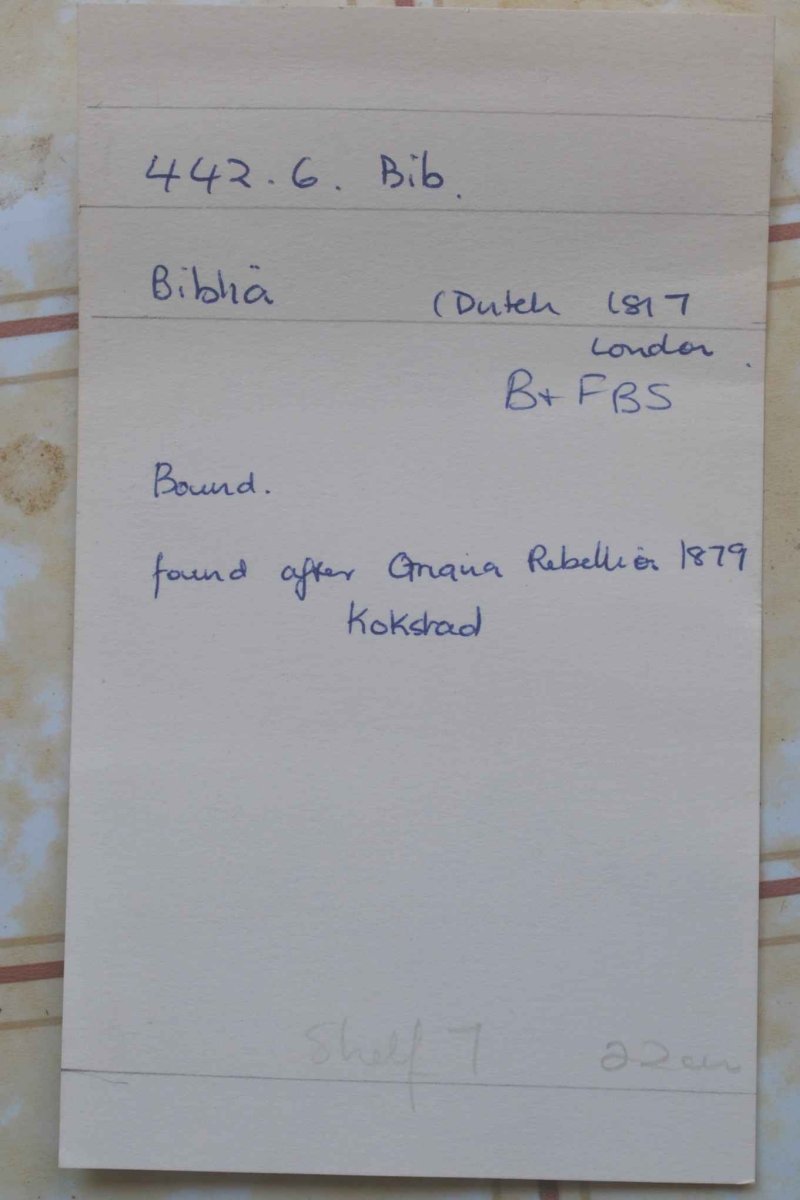 442.6. Bib.
Bibliä (Dutch 1817
London.
B+ FBS
Bound.
found after Rebellion 1879
Kokstad
Shelf 7 22cm